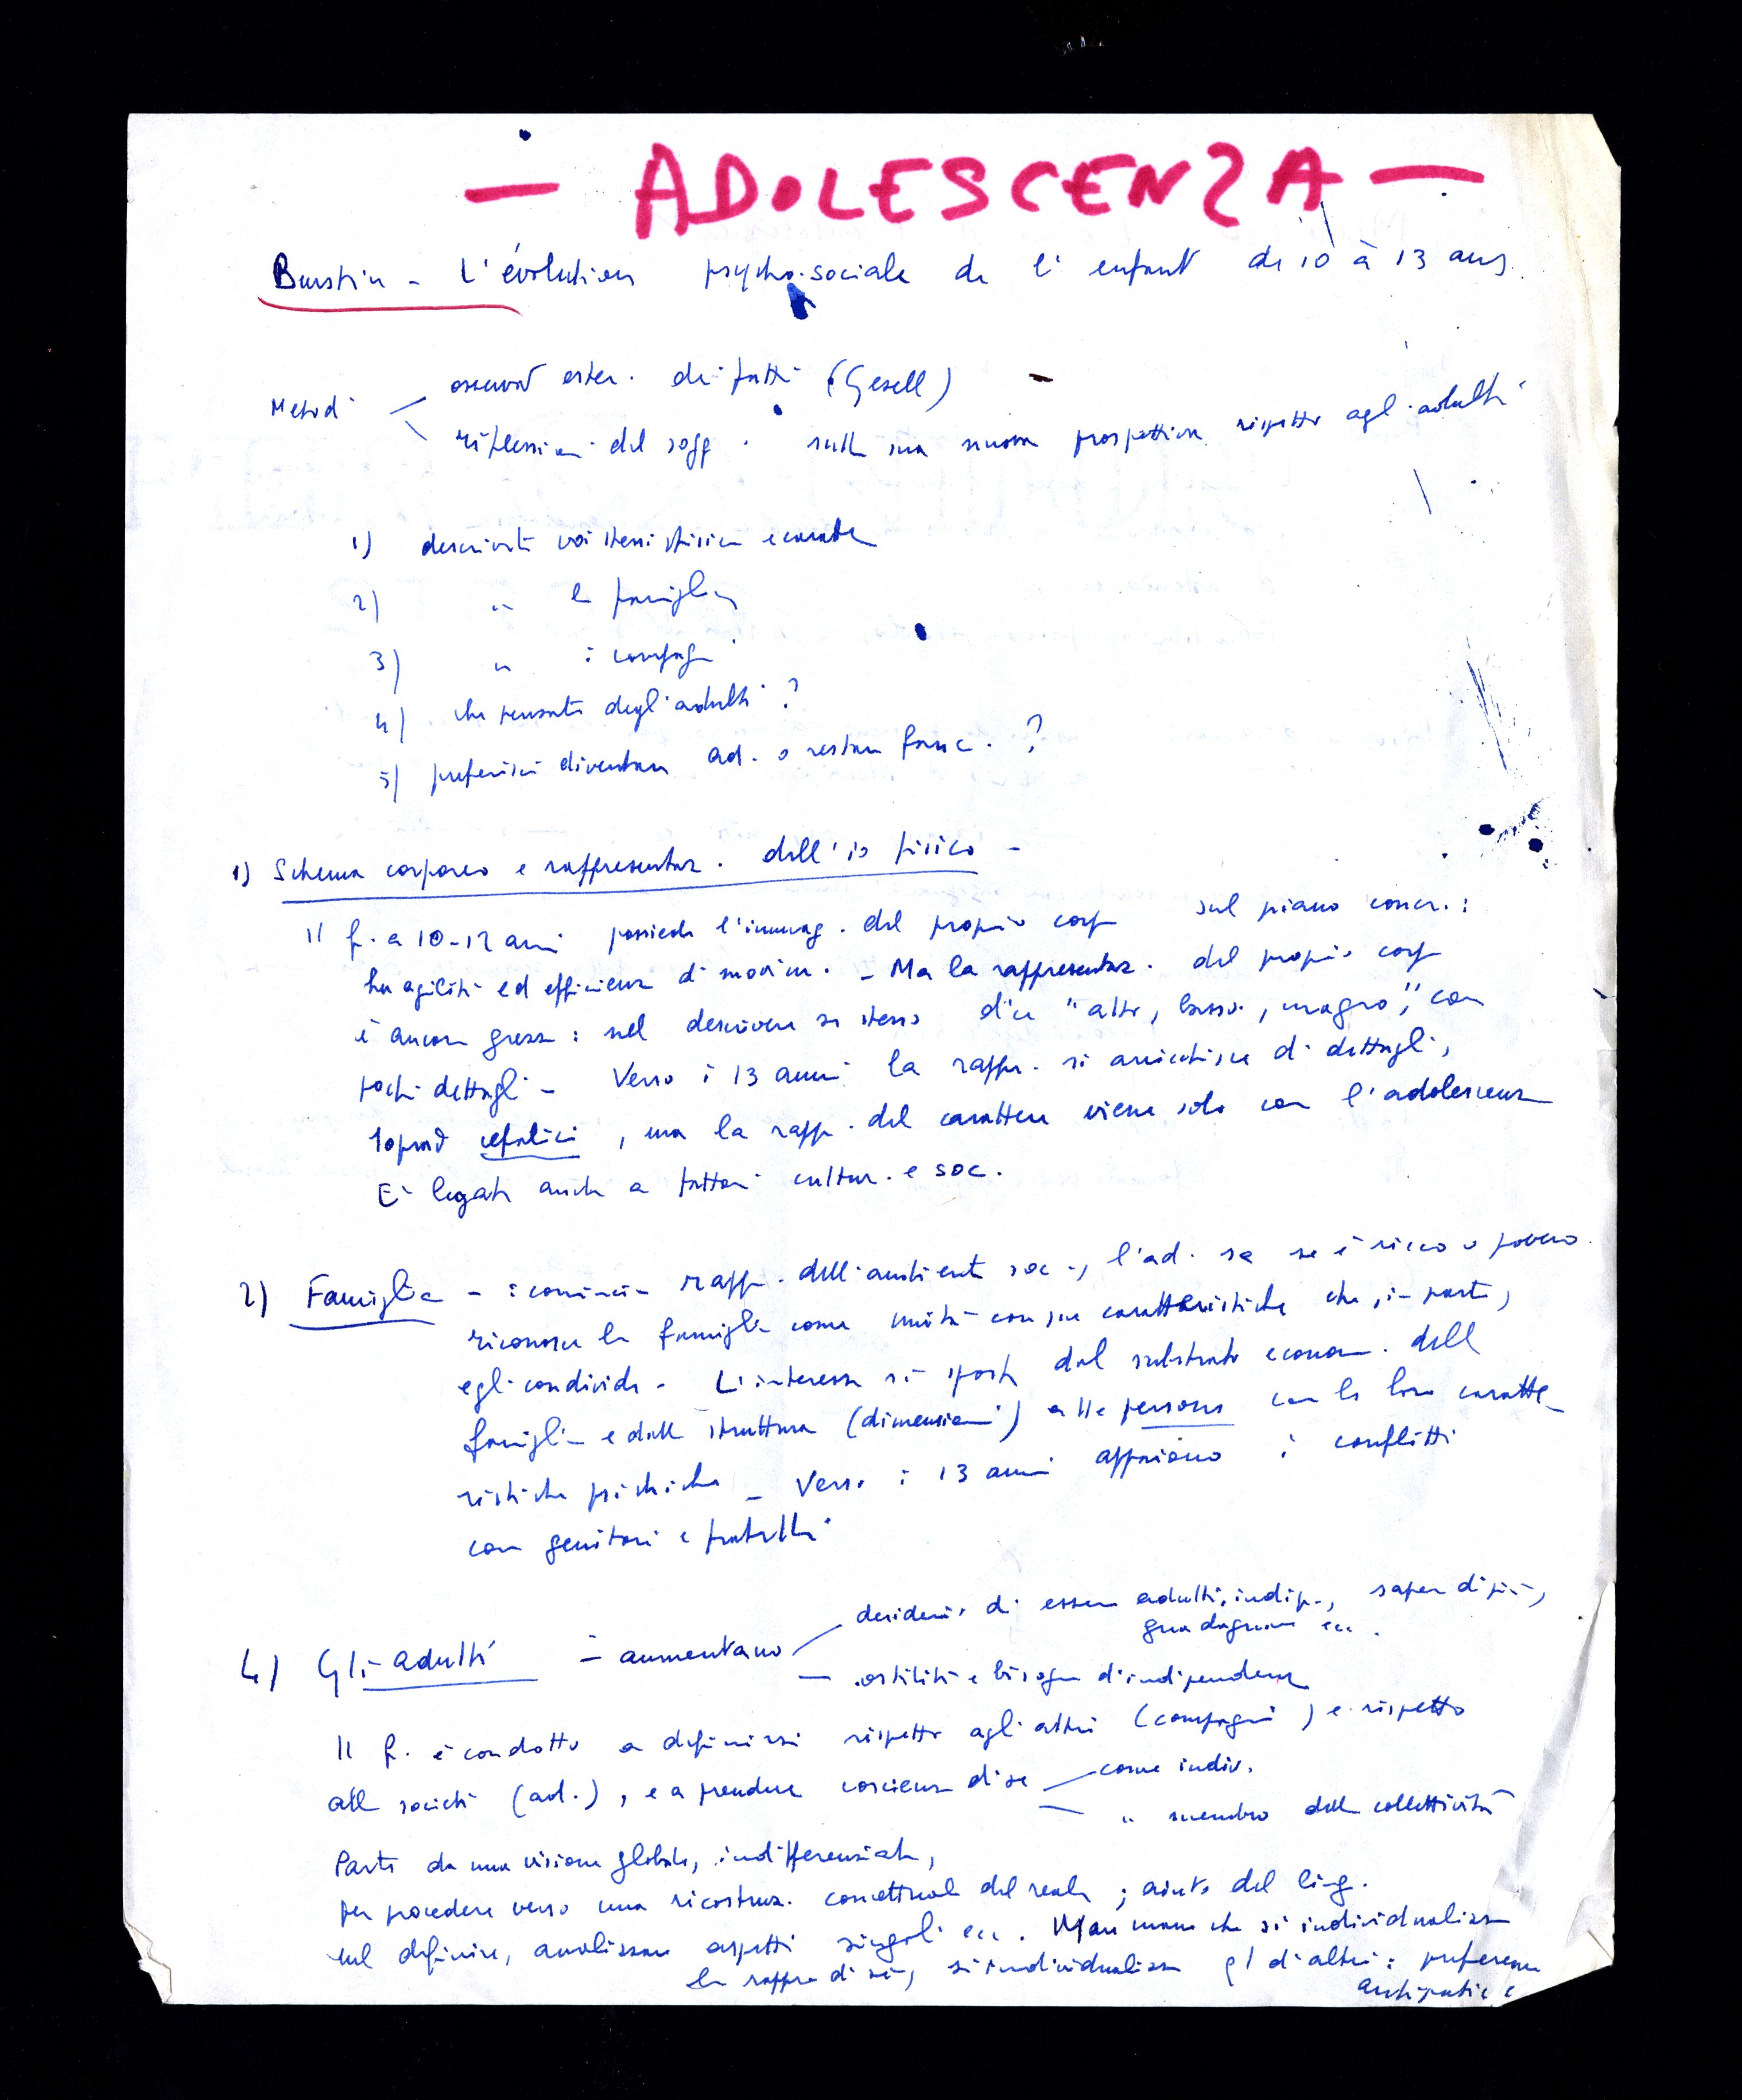 — ADOLESCENZA —
Burstin - L'évolution psycho-sociale de l'enfant de 10 à 13 ans.
Metodi
osservaz ester. dei fatti (Gesell)
riflessioni del sogg. sulla sua nuova prospettiva rispetto agli adulti
1) descrivete voi stessi fisicam e caratt
2) " la famiglia
3) " i compagni
4) che pensate degli adulti ?
5) preferisci diventare ad. o restare fanc. ?
1) Schema corporeo e rappresentaz. dell'io fisico -
Il f. a 10-12 anni possiede l'immag. del proprio corpo sul piano concr. :
ha agilità ed efficienza di movim. - Ma la rappresentaz. del proprio corpo
è ancora grezza : nel descrivere se stesso dice "alto, basso, magro", con
pochi dettagli - Verso i 13 anni la rappr. si arricchisce di dettagli,
soprat cefalici, ma la rapp. del carattere viene solo con l'adolescenza
E' legata anche a fattori cultur. e soc.
2) Famiglia - incomincia rapp. dell'ambiente soc., l'ad. sa se è ricco o povero.
riconosce la famiglia come unità con sue caratteristiche che, in parte,
egli condivide - L'interesse si sposta dal substrato econom. della
famiglia e dalla struttura (dimensioni) alle persone con le loro caratte-
ristiche psichiche - Verso i 13 anni appaiono i conflitti
con genitori e fratelli
4) Gli adulti - aumentano
desiderio di essere adulti, indip., saper di più,
guadagnare ecc.
- ostilità e bisogno d'indipendenza
Il f. è condotto a definirsi rispetto agli altri (compagni) e rispetto
alla società (ad.), e a prendere coscienza di se
come indiv.
" membro della collettività
Parte da una visione globale, indifferenziata,
per procedere verso una ricostruz. concettuale del reale ; aiuto del ling.
nel definire, analizzare aspetti singoli ecc. Man mano che si individualizza
la rappr di sé, si individualizza gl d'altri : preferenze
antipatie